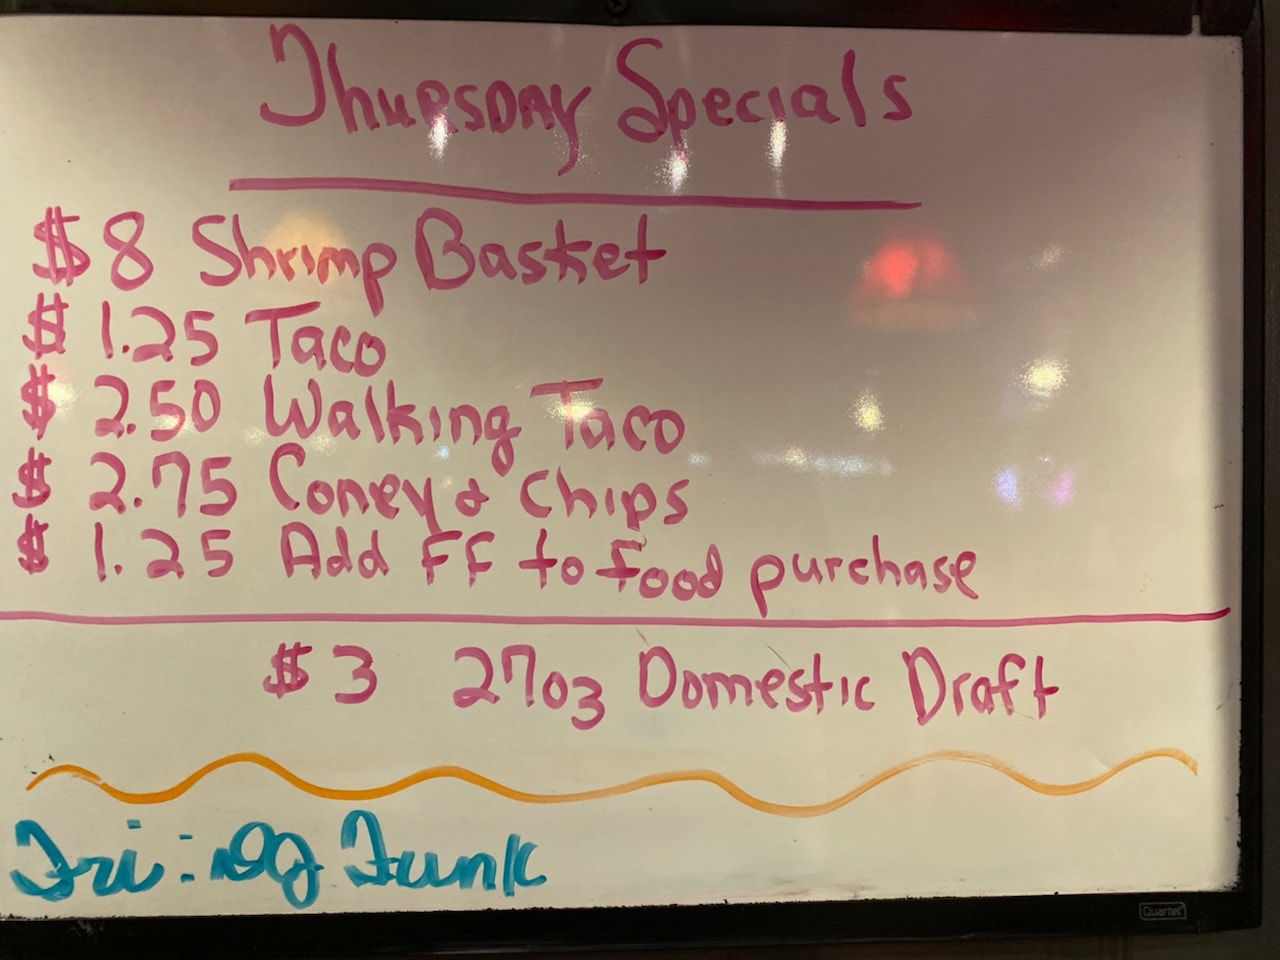 Thursday Specials
$8 Shrimp Basket
$1.25 Taco
$2.50 Walking Taco
$2.75 Coney & Chips
$1.25 Add FF to food purchase
$3 27oz Domestic Draft
Fri: DJ Funk
Quartet